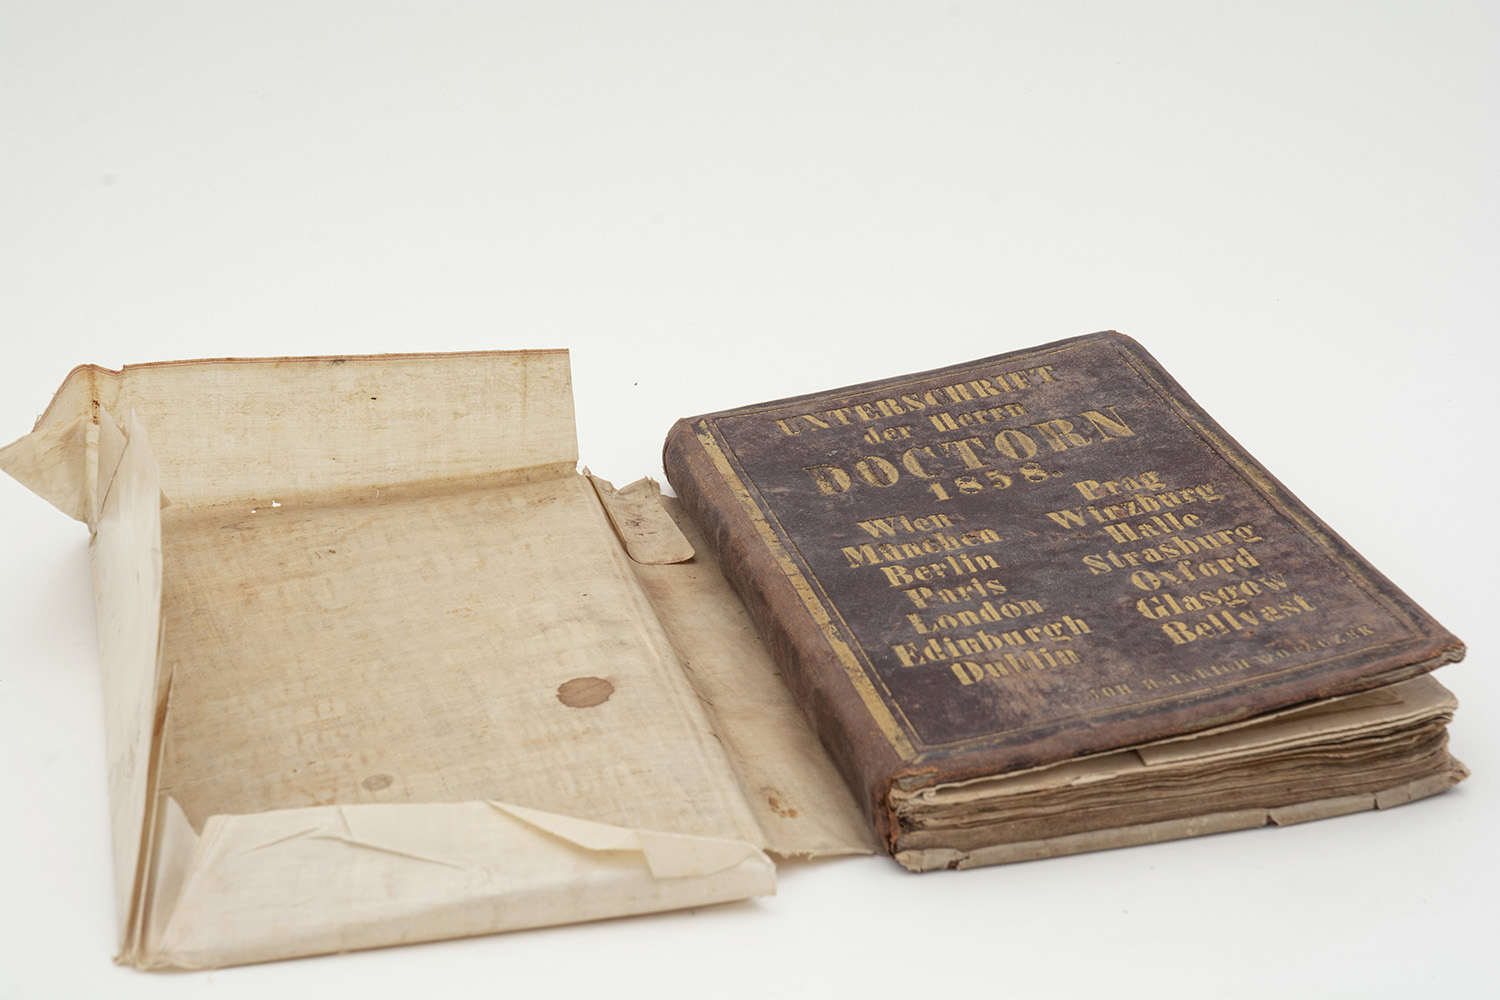 UNTERSCHRIFT
der Herrn
DOCTORN
1858.
Wien
München
Berlin
Paris
London
Edinburgh
Dublin
Prag
Wirzburg
Halle
Strasburg
Oxford
Glasgow
Bellvast
JOH